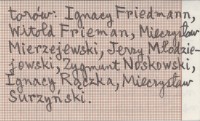 torów: Ignacy Friedmann,
Witold Frieman, Mieczysław
Mierzejewski, Jerzy Młodzie-
jowski, Zygmunt Noskowski,
Ignacy Rączka, Mieczysław
Surzyński.